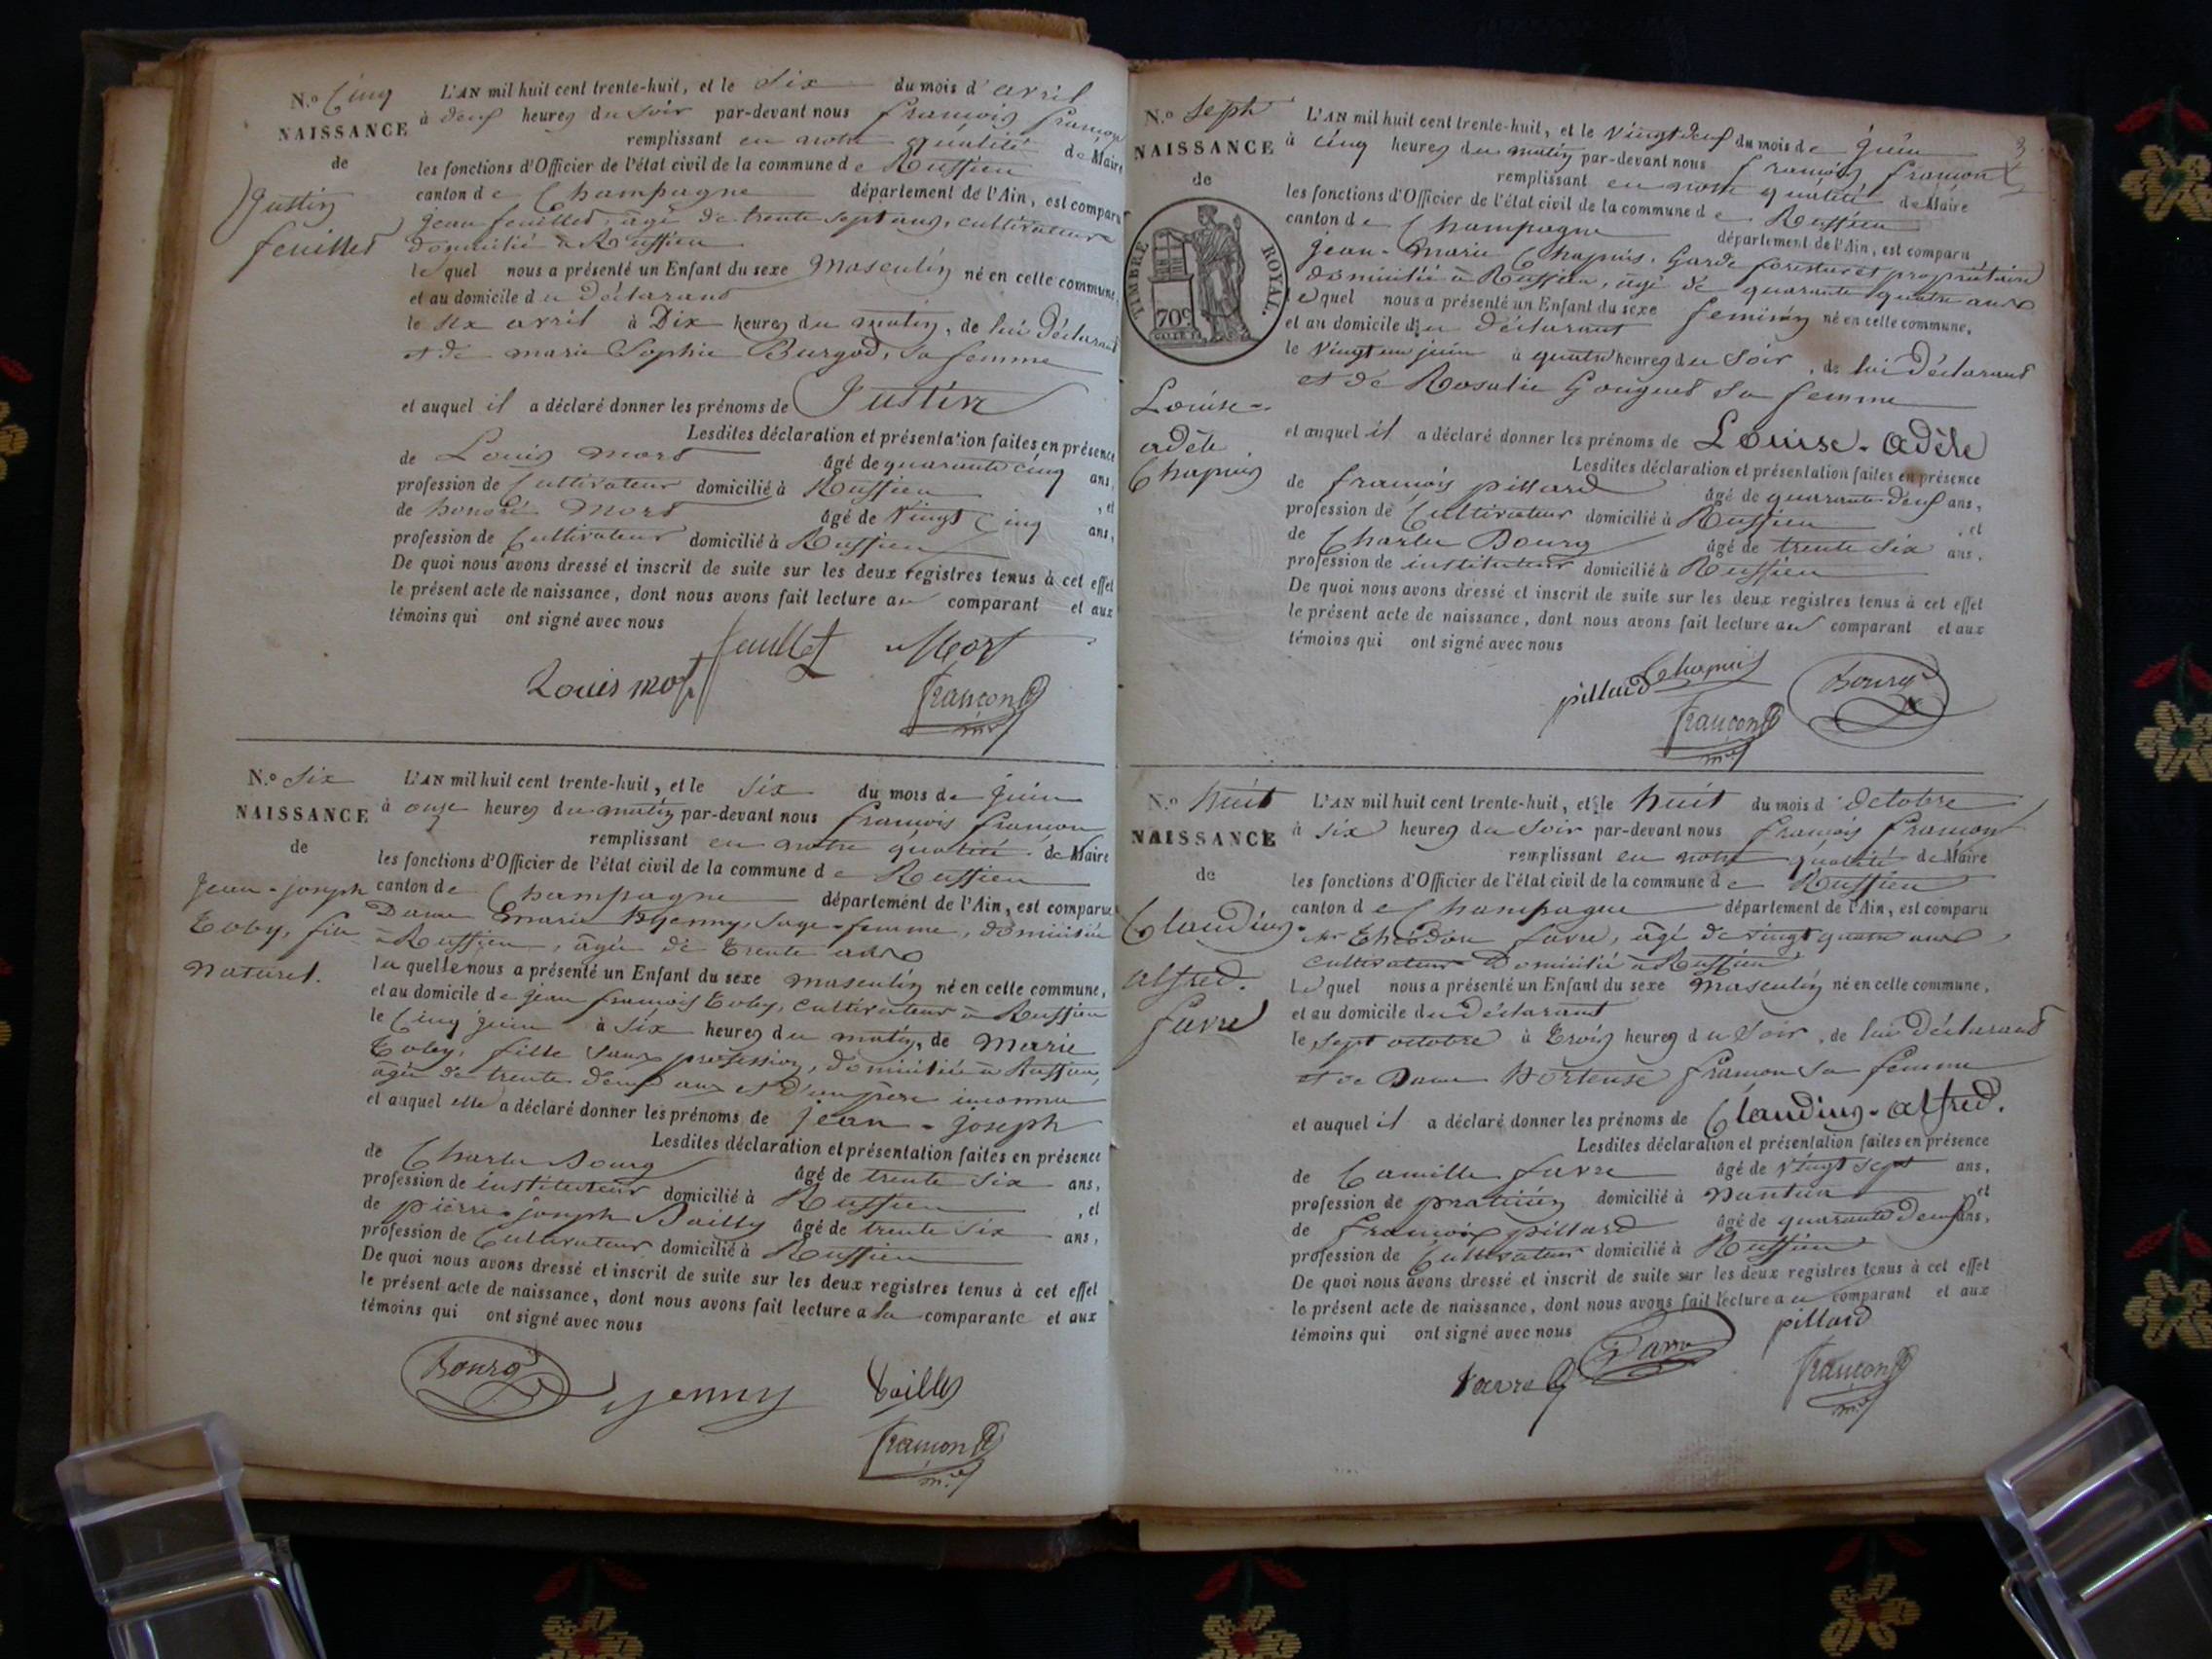 N.º Cinq
NAISSANCE
de
Justin
feuillet
L'AN mil huit cent trente-huit, et le Six du mois d'avril
à deux heures du soir par-devant nous françois françon
remplissant en notre qualité de Maire
les fonctions d'Officier de l'état civil de la commune de Ruffieu
canton de Champagne département de l'Ain, est comparu
jean feuillet, agé de trente sept ans, cultivateur
domicilié à Ruffieu
lequel nous a présenté un Enfant du sexe Masculin né en cette commune,
et au domicile du déclarant
le six avril à Dix heures du matin, de lui déclarant
et de marie Sophie Burgod, sa femme
et auquel il a déclaré donner les prénoms de Justin
Lesdites déclaration et présentation faites en présence
de Louis Mort âgé de quarante cinq ans,
profession de Cultivateur domicilié à Ruffieu, et
de honoré Mort âgé de vingt cinq ans,
profession de Cultivateur domicilié à Ruffieu
De quoi nous avons dressé et inscrit de suite sur les deux registres tenus à cet effet
le présent acte de naissance, dont nous avons fait lecture au comparant et aux
témoins qui ont signé avec nous
feuillet Mort
Louis mort
françon
m.re
N.º Six
NAISSANCE
de
Jean-joseph
Toby, fils
naturel.
L'AN mil huit cent trente-huit, et le six du mois de juin
à onze heures du matin par-devant nous françois françon
remplissant en notre qualité de Maire
les fonctions d'Officier de l'état civil de la commune de Ruffieu
canton de Champagne département de l'Ain, est comparue
Dame marie Yenny, Sage-femme, domiciliée
à Ruffieu, âgée de trente ans
laquelle nous a présenté un Enfant du sexe masculin né en cette commune,
et au domicile de jean françois Toby, cultivateur à Ruffieu
le Cinq juin à six heures du matin, de Marie
Toby, fille sans profession, domiciliée à Ruffieu,
agée de trente deux ans et d'un père inconnu
et auquel elle a déclaré donner les prénoms de jean-joseph
Lesdites déclaration et présentation faites en présence
de Charles Bourg âgé de trente six ans,
profession de instituteur domicilié à Ruffieu, et
de pierre joseph Bailly âgé de trente six ans,
profession de Cultivateur domicilié à Ruffieu
De quoi nous avons dressé et inscrit de suite sur les deux registres tenus à cet effet
le présent acte de naissance, dont nous avons fait lecture a la comparante et aux
témoins qui ont signé avec nous
Bourg yenny bailly
françon
m.re
3
N.º Sept
NAISSANCE
de
TIMBRE ROYAL.
70c
Louise-
adèle
Chapuis
L'AN mil huit cent trente-huit, et le vingt deux du mois de juin
à cinq heures du matin par-devant nous françois françon
remplissant en notre qualité de Maire
les fonctions d'Officier de l'état civil de la commune de Ruffieu
canton de Champagne département de l'Ain, est comparu
jean-marie Chapuis, Garde forestier et propriétaire
domicilié à Ruffieu, agé de quarante quatre ans
lequel nous a présenté un Enfant du sexe feminin né en cette commune,
et au domicile du déclarant
le vingt un juin à quatre heures du Soir, de lui déclarant
et de Rosalie Gouguet sa femme
et auquel il a déclaré donner les prénoms de Louise-Adèle
Lesdites déclaration et présentation faites en présence
de françois pillard âgé de quarante deux ans,
profession de Cultivateur domicilié à Ruffieu, et
de Charles Bourg âgé de trente six ans,
profession de instituteur domicilié à Ruffieu
De quoi nous avons dressé et inscrit de suite sur les deux registres tenus à cet effet
le présent acte de naissance, dont nous avons fait lecture au comparant et aux
témoins qui ont signé avec nous
pillard Chapuis Bourg
françon
m.re
N.º huit
NAISSANCE
de
Claudius-
alfred.
favre
L'AN mil huit cent trente-huit, et le huit du mois d'octobre
à six heures du soir par-devant nous françois françon
remplissant en notre qualité de Maire
les fonctions d'Officier de l'état civil de la commune de Ruffieu
canton de Champagne département de l'Ain, est comparu
Mr Théodore favre, âgé de vingt quatre ans
cultivateur domicilié à Ruffieu
lequel nous a présenté un Enfant du sexe masculin né en cette commune,
et au domicile du déclarant
le sept octobre à trois heures du soir, de lui déclarant
et de Dame Hortense françon sa femme
et auquel il a déclaré donner les prénoms de Claudius-alfred.
Lesdites déclaration et présentation faites en présence
de Camille favre âgé de vingt sept ans,
profession de praticien domicilié à Nantua et
de françois pillard âgé de quarante deux ans,
profession de Cultivateur domicilié à Ruffieu
De quoi nous avons dressé et inscrit de suite sur les deux registres tenus à cet effet
le présent acte de naissance, dont nous avons fait lecture au comparant et aux
témoins qui ont signé avec nous
favre Favre pillard
françon
m.re